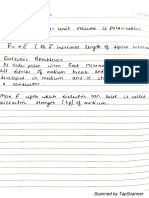 per unit volume is polarization
P ∝ E (As E increases length of dipole increases
Dielectric Breakdown
It takes place when Eext increases
all dipoles of medium break and
developed in medium and it starts
a conductor.
Max E upto which dielectric can exist is called
dielectric strength of medium.
Scanned by TapScanner